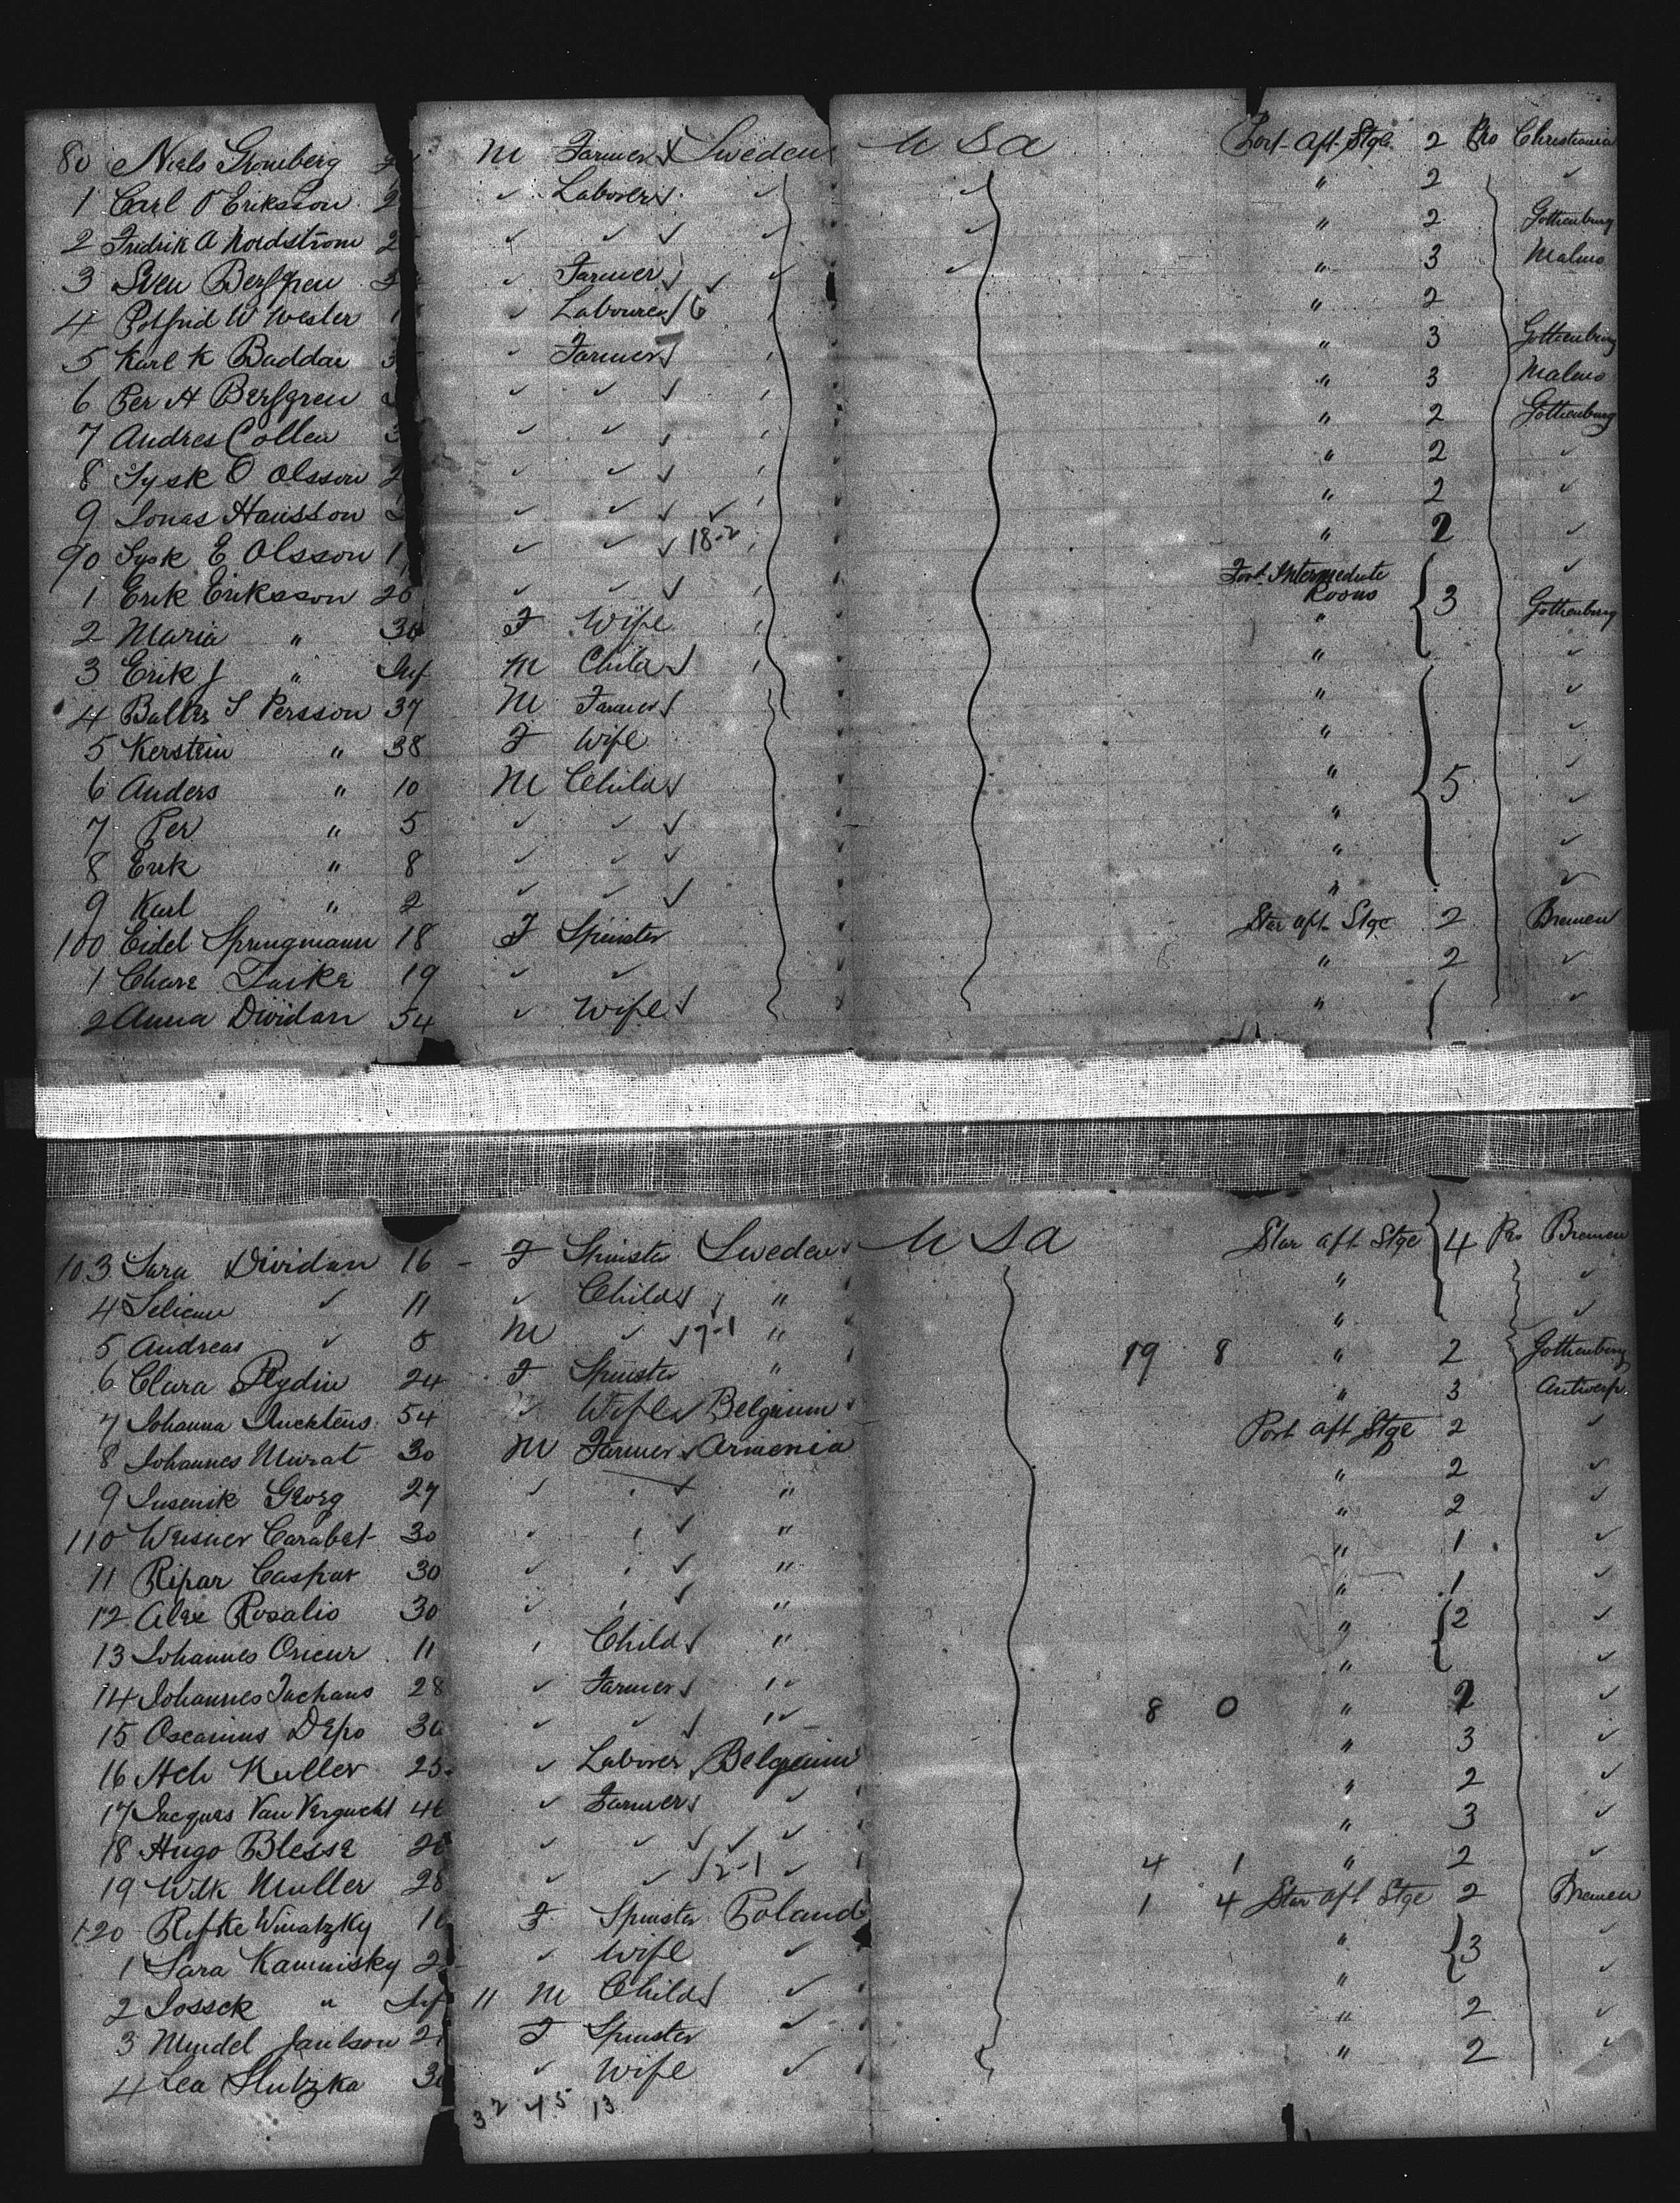 80 Niels Stromberg 2 M Farmer Sweden U S A Port Aft Stge 2 Pro Christiania
1 Carl O Eriksson 2 ✓ Laborer ✓ ✓ " 2 ✓
2 Fredrik A Nordstrom 2 ✓ ✓ ✓ ✓ " 2 Gothenburg
3 Sven Bergren 3 ✓ Farmer ✓ ✓ " 3 Malmo
4 W Wester 1 ✓ Labourer 6 " 2
5 Karl K Baddar 3 ✓ Farmer " 3 Gothenburg
6 Per H Bergren ✓ ✓ " 3 Malmo
7 Andres Collen 3 ✓ ✓ " 2 Gothenburg
8 Tysk O Olsson 2 ✓ ✓ " 2 ✓
9 Jonas Hansson ✓ ✓ ✓ " 2 ✓
90 Tysk E Olsson 1 ✓ ✓ 18-2 " 2 ✓
1 Erik Eriksson 26 ✓ ✓ Port Intermediate Rooms 3 ✓
2 Maria " 30 F Wife " Gothenburg
3 Erik J " Inf M Child " ✓
4 Balter S Persson 37 M Farmer " ✓
5 Kerstein " 38 F Wife " ✓
6 Anders " 10 M Child " 5 ✓
7 Per " 5 ✓ ✓ " ✓
8 Erik " 8 ✓ ✓ " ✓
9 Karl " 2 ✓ ✓ " ✓
100 Eidel Springmann 18 F Spinster Star aft Stge 2 Bremen
1 Chare Taike 19 ✓ ✓ " 2 ✓
2 Anna Dividan 54 ✓ Wife " ✓
103 Sara Dividan 16 F Spinster Sweden U S A Star aft Stge 4 Pro Bremen
4 ✓ 11 ✓ Child " " ✓
5 Andreas ✓ 5 M ✓ 7-1 " " ✓
6 Clara Rydin 24 F Spinster " 19 8 " 2 Gothenburg
7 Johanna 54 ✓ Wife Belgium " 3 Antwerp
8 Johannes Murat 30 M Farmer Armenia Port aft Stge 2 ✓
9 Georg 27 ✓ " " 2 ✓
110 Carabet 30 ✓ " " 2 ✓
11 Ripar Caspar 30 ✓ " " 1 ✓
12 Alex Rosalio 30 ✓ " " 1 ✓
13 Johannes 11 Child " " 2 ✓
14 Johannes 28 ✓ Farmer " " ✓
15 Depo 30 ✓ ✓ " 8 0 " 2 ✓
16 Ach Kuller 25 ✓ Laborer Belgium " 3 ✓
17 Jacques Van Vergucht 46 ✓ Farmer ✓ " 2 ✓
18 Hugo Blesse 26 ✓ ✓ ✓ ✓ " 3 ✓
19 Wilk Muller 28 ✓ ✓ 2-1 ✓ 4 1 " 2 ✓
120 Rifke Winatzky 16 F Spinster Poland 1 4 Star aft Stge 2 Bremen
1 Sara Kaminisky 2 ✓ Wife ✓ " 3 ✓
2 Jossek " Inf 11 M Child ✓ " ✓
3 Mindel Janlson 21 F Spinster ✓ " 2 ✓
4 Lea Slutzka 30 ✓ Wife ✓ " 2 ✓
32 45 13